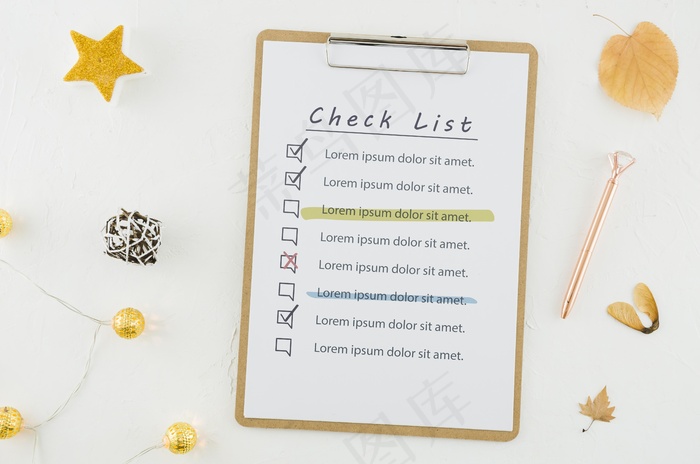 Check List
Lorem ipsum dolor sit amet.
Lorem ipsum dolor sit amet.
Lorem ipsum dolor sit amet.
Lorem ipsum dolor sit amet.
Lorem ipsum dolor sit amet.
Lorem ipsum dolor sit amet.
Lorem ipsum dolor sit amet.
Lorem ipsum dolor sit amet.